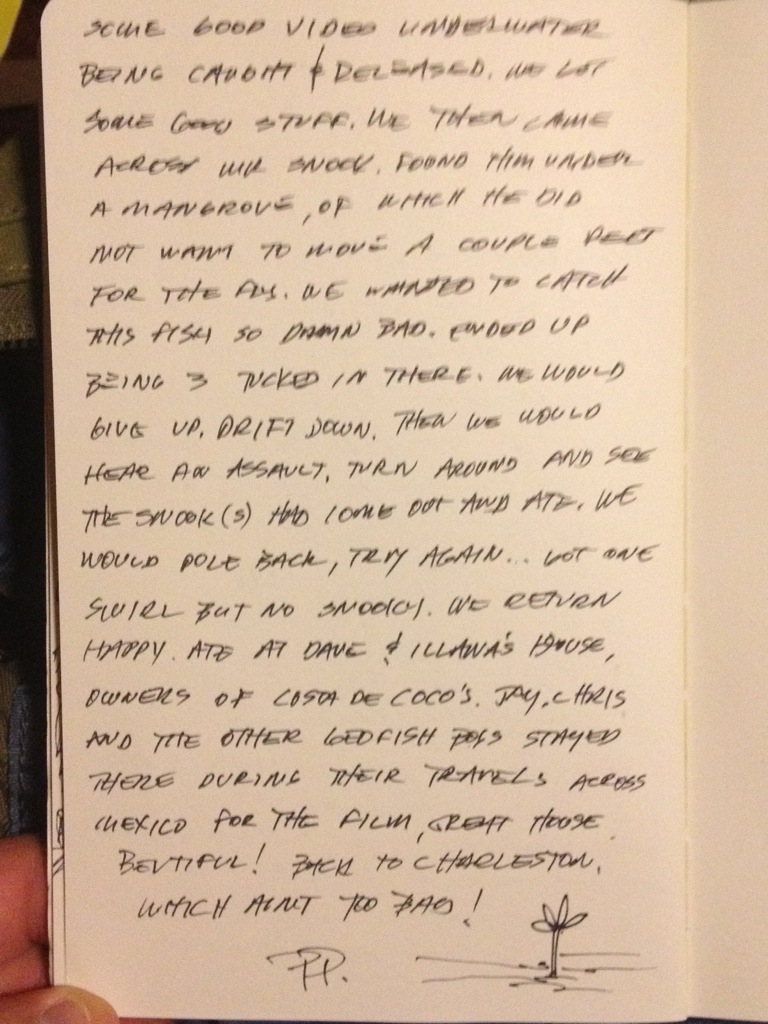 SOME GOOD VIDEO UNDERWATER
BEING CAUGHT & RELEASED. WE GOT
SOME GOOD STUFF. WE THEN CAME
ACROSS MR SNOOK. FOUND HIM UNDER
A MANGROVE, OF WHICH HE DID
NOT WANT TO MOVE A COUPLE FEET
FOR THE FLY. WE WANTED TO CATCH
THIS FISH SO DAMN BAD. ENDED UP
BEING 3 TUCKED IN THERE. WE WOULD
GIVE UP, DRIFT DOWN, THEN WE WOULD
HEAR AN ASSAULT, TURN AROUND AND SEE
THE SNOOK(S) HAD COME OUT AND ATE. WE
WOULD POLE BACK, TRY AGAIN... GOT ONE
SWIRL BUT NO SNOOKY. WE RETURN
HAPPY. ATE AT DAVE & ILLANA'S HOUSE,
OWNERS OF COSTA DE COCO'S. JAY, CHRIS
AND THE OTHER GEOFISH BOYS STAYED
THERE DURING THEIR TRAVELS ACROSS
MEXICO FOR THE FILM, GREAT HOUSE.
BEUTIFUL! BACK TO CHARLESTON.
WHICH AINT TOO BAD!
PP.